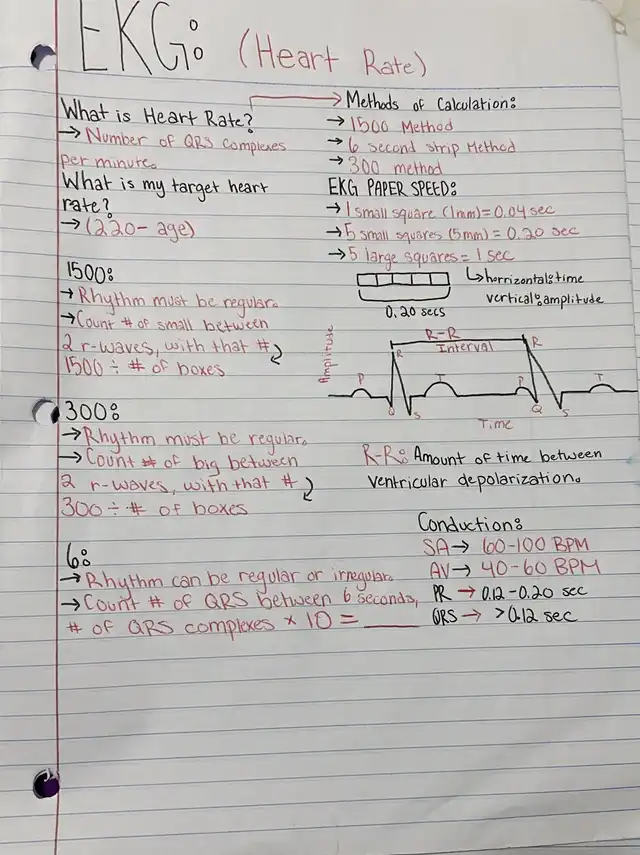 EKG: (Heart Rate)
What is Heart Rate?
→ Number of QRS complexes
per minute.
What is my target heart
rate?
→ (220 - age)
1500:
→ Rhythm must be regular.
→ Count # of small between
2 r-waves, with that #
1500 ÷ # of boxes
300:
→ Rhythm must be regular.
→ Count # of big between
2 r-waves, with that #
300 ÷ # of boxes
6:
→ Rhythm can be regular or irregular.
→ Count # of QRS between 6 seconds,
# of QRS complexes × 10 = ____
→ Methods of Calculation:
→ 1500 Method
→ 6 second strip Method
→ 300 method
EKG PAPER SPEED:
→ 1 small square (1mm) = 0.04 sec
→ 5 small squares (5mm) = 0.20 sec
→ 5 large squares = 1 sec
↳ horrizontal: time
vertical: amplitude
0.20 secs
R-R
Interval
Amplitude
P
R
Q
S
T
P
R
Q
S
T
Time
R-R: Amount of time between
ventricular depolarization.
Conduction:
SA → 60-100 BPM
AV → 40-60 BPM
PR → 0.12-0.20 sec
QRS → >0.12 sec